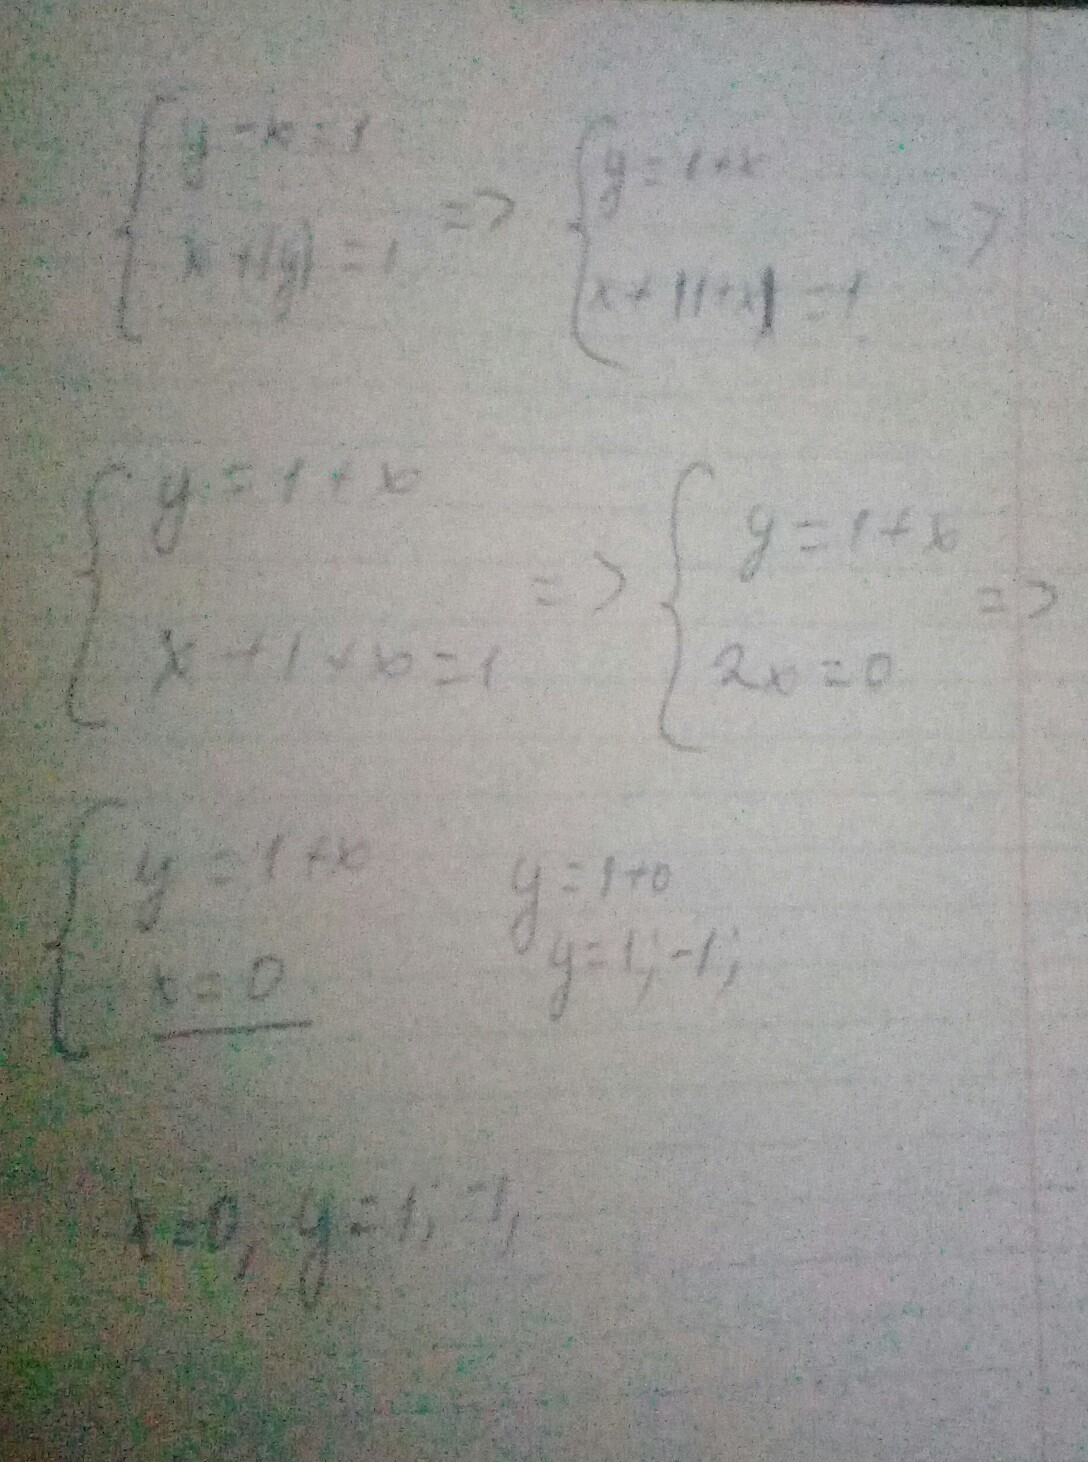 { y - x = 1
x + |y| = 1 => { y = 1 + x
x + |1 + x| = 1 =>
{ y = 1 + x
x + 1 + x = 1 => { y = 1 + x
2x = 0 =>
{ y = 1 + x
x = 0
y = 1 + 0
y = 1; -1;
x = 0, y = 1; -1,